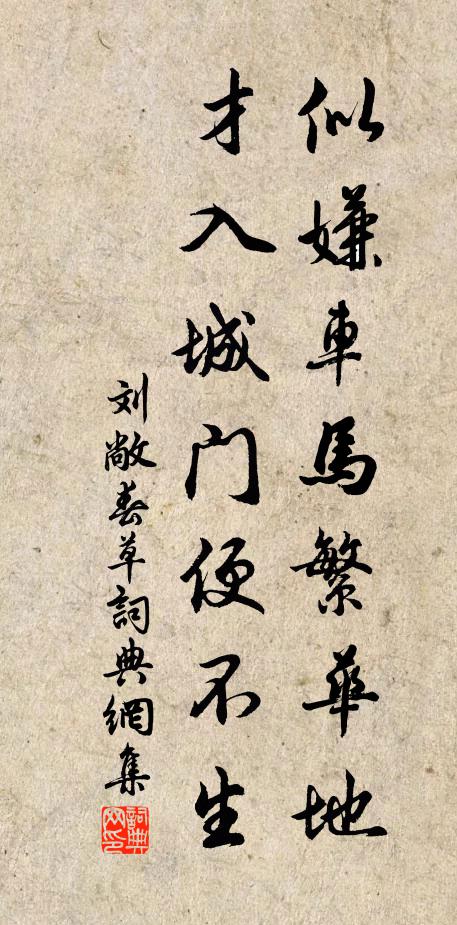 似嫌車馬繁華地
才入城门便不生
刘敞春草詞典網集
詞典网印